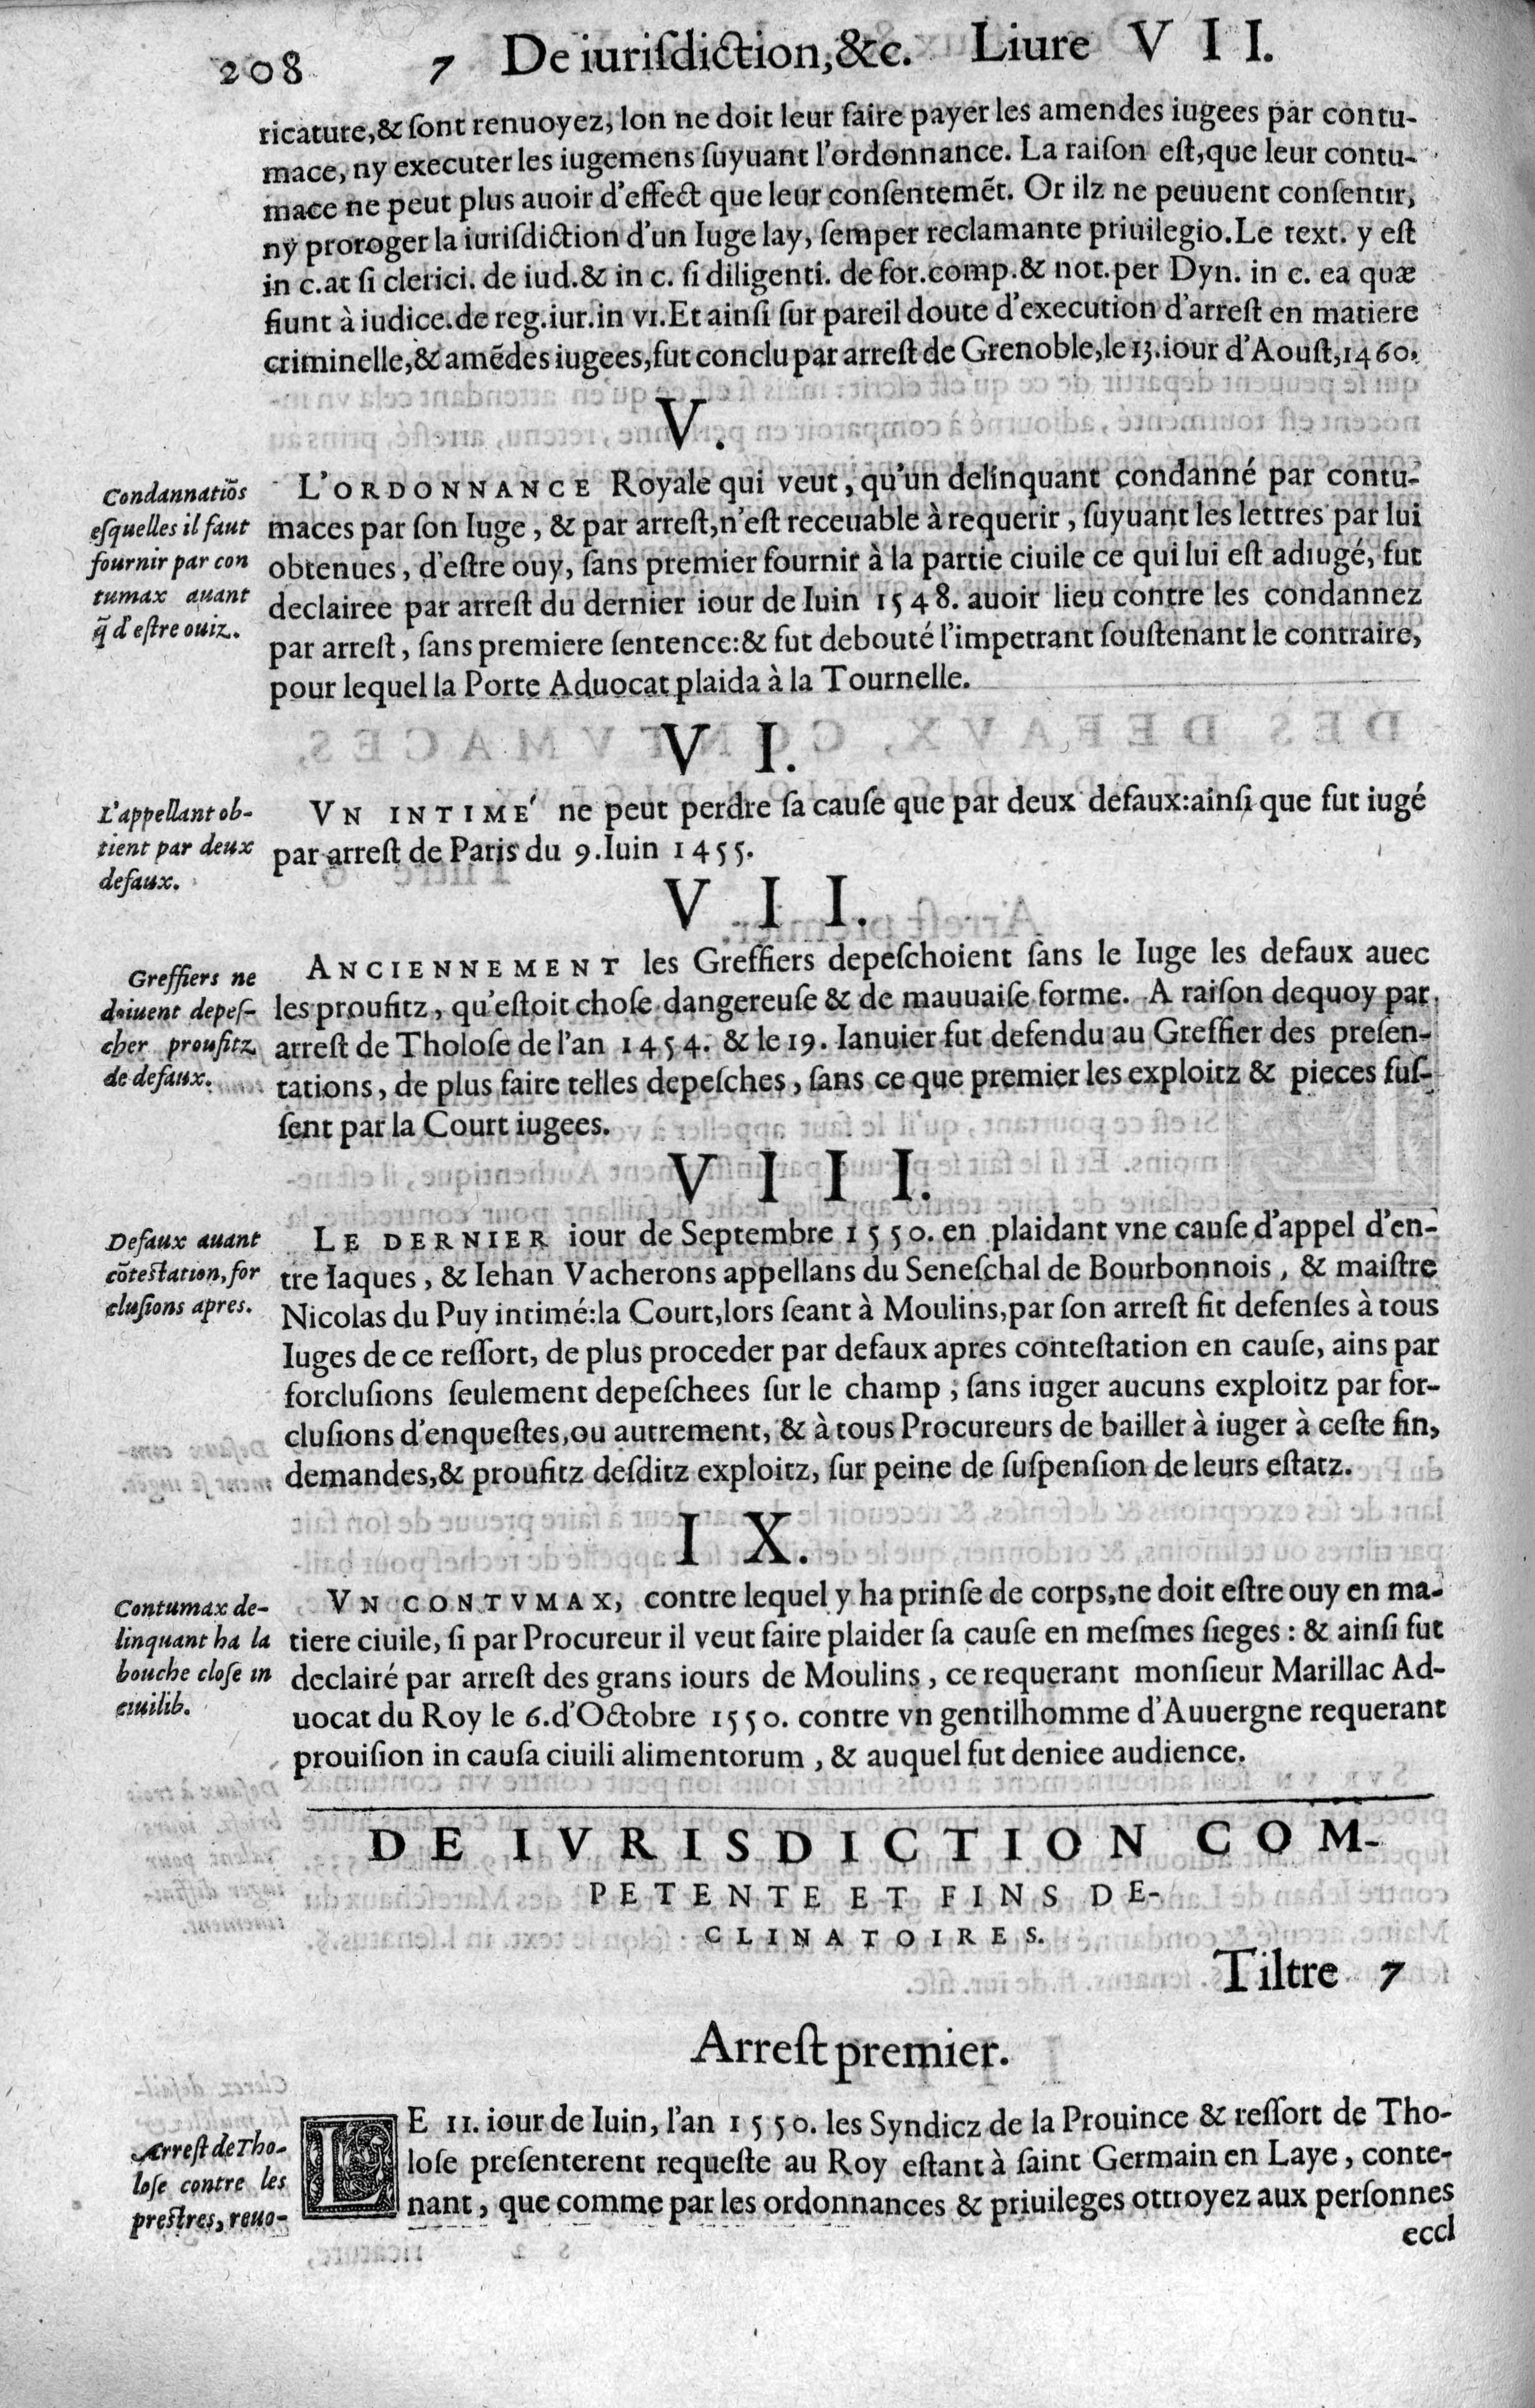 208 7 De iurisdiction,&c. Liure VII.
ricature,& sont renuoyez, lon ne doit leur faire payer les amendes iugees par contu-
mace, ny executer les iugemens suyuant l'ordonnance. La raison est,que leur contu-
mace ne peut plus auoir d'effect que leur consentemēt. Or ilz ne peuuent consentir,
ny proroger la iurisdiction d'un Iuge lay, semper reclamante priuilegio.Le text. y est
in c.at si clerici. de iud.& in c. si diligenti. de for.comp.& not.per Dyn. in c. ea quæ
fiunt à iudice.de reg.iur.in VI.Et ainsi sur pareil doute d'execution d'arrest en matiere
criminelle,& amēdes iugees,fut conclu par arrest de Grenoble,le 13.iour d'Aoust,1460.
V.
Condannatiōs
esquelles il faut
fournir par con
tumax auant
q̃ d'estre ouiz.
L'ORDONNANCE Royale qui veut, qu'un delinquant condanné par contu-
maces par son Iuge, & par arrest,n'est receuable à requerir, suyuant les lettres par lui
obtenues, d'estre ouy, sans premier fournir à la partie ciuile ce qui lui est adiugé, fut
declairee par arrest du dernier iour de Iuin 1548. auoir lieu contre les condannez
par arrest, sans premiere sentence:& fut debouté l'impetrant soustenant le contraire,
pour lequel la Porte Aduocat plaida à la Tournelle.
VI.
L'appellant ob-
tient par deux
defaux.
VN INTIME' ne peut perdre sa cause que par deux defaux:ainsi que fut iugé
par arrest de Paris du 9.Iuin 1455.
VII.
Greffiers ne
doiuent depes-
cher proufitz
de defaux.
ANCIENNEMENT les Greffiers depeschoient sans le Iuge les defaux auec
les proufitz, qu'estoit chose dangereuse & de mauuaise forme. A raison dequoy par
arrest de Tholose de l'an 1454. & le 19. Ianuier fut defendu au Greffier des presen-
tations, de plus faire telles depesches, sans ce que premier les exploitz & pieces fus-
sent par la Court iugees.
VIII.
Defaux auant
cōtestation, for
clusions apres.
LE DERNIER iour de Septembre 1550. en plaidant vne cause d'appel d'en-
tre Iaques, & Iehan Vacherons appellans du Seneschal de Bourbonnois, & maistre
Nicolas du Puy intimé:la Court,lors seant à Moulins,par son arrest fit defenses à tous
Iuges de ce ressort, de plus proceder par defaux apres contestation en cause, ains par
forclusions seulement depeschees sur le champ, sans iuger aucuns exploitz par for-
clusions d'enquestes,ou autrement, & à tous Procureurs de bailler à iuger à ceste fin,
demandes,& proufitz desditz exploitz, sur peine de suspension de leurs estatz.
IX.
Contumax de-
linquant ha la
bouche close in
ciuilib.
VN CONTVMAX, contre lequel y ha prinse de corps,ne doit estre ouy en ma-
tiere ciuile, si par Procureur il veut faire plaider sa cause en mesmes sieges : & ainsi fut
declairé par arrest des grans iours de Moulins, ce requerant monsieur Marillac Ad-
uocat du Roy le 6.d'Octobre 1550. contre vn gentilhomme d'Auuergne requerant
prouision in causa ciuili alimentorum, & auquel fut deniee audience.
DE IVRISDICTION COM-
PETENTE ET FINS DE-
CLINATOIRES.
Tiltre 7
Arrest premier.
Arrest de Tho-
lose contre les
prestres, reuo-
LE 11. iour de Iuin, l'an 1550. les Syndicz de la Prouince & ressort de Tho-
lose presenterent requeste au Roy estant à saint Germain en Laye, conte-
nant, que comme par les ordonnances & priuileges ottroyez aux personnes
eccl